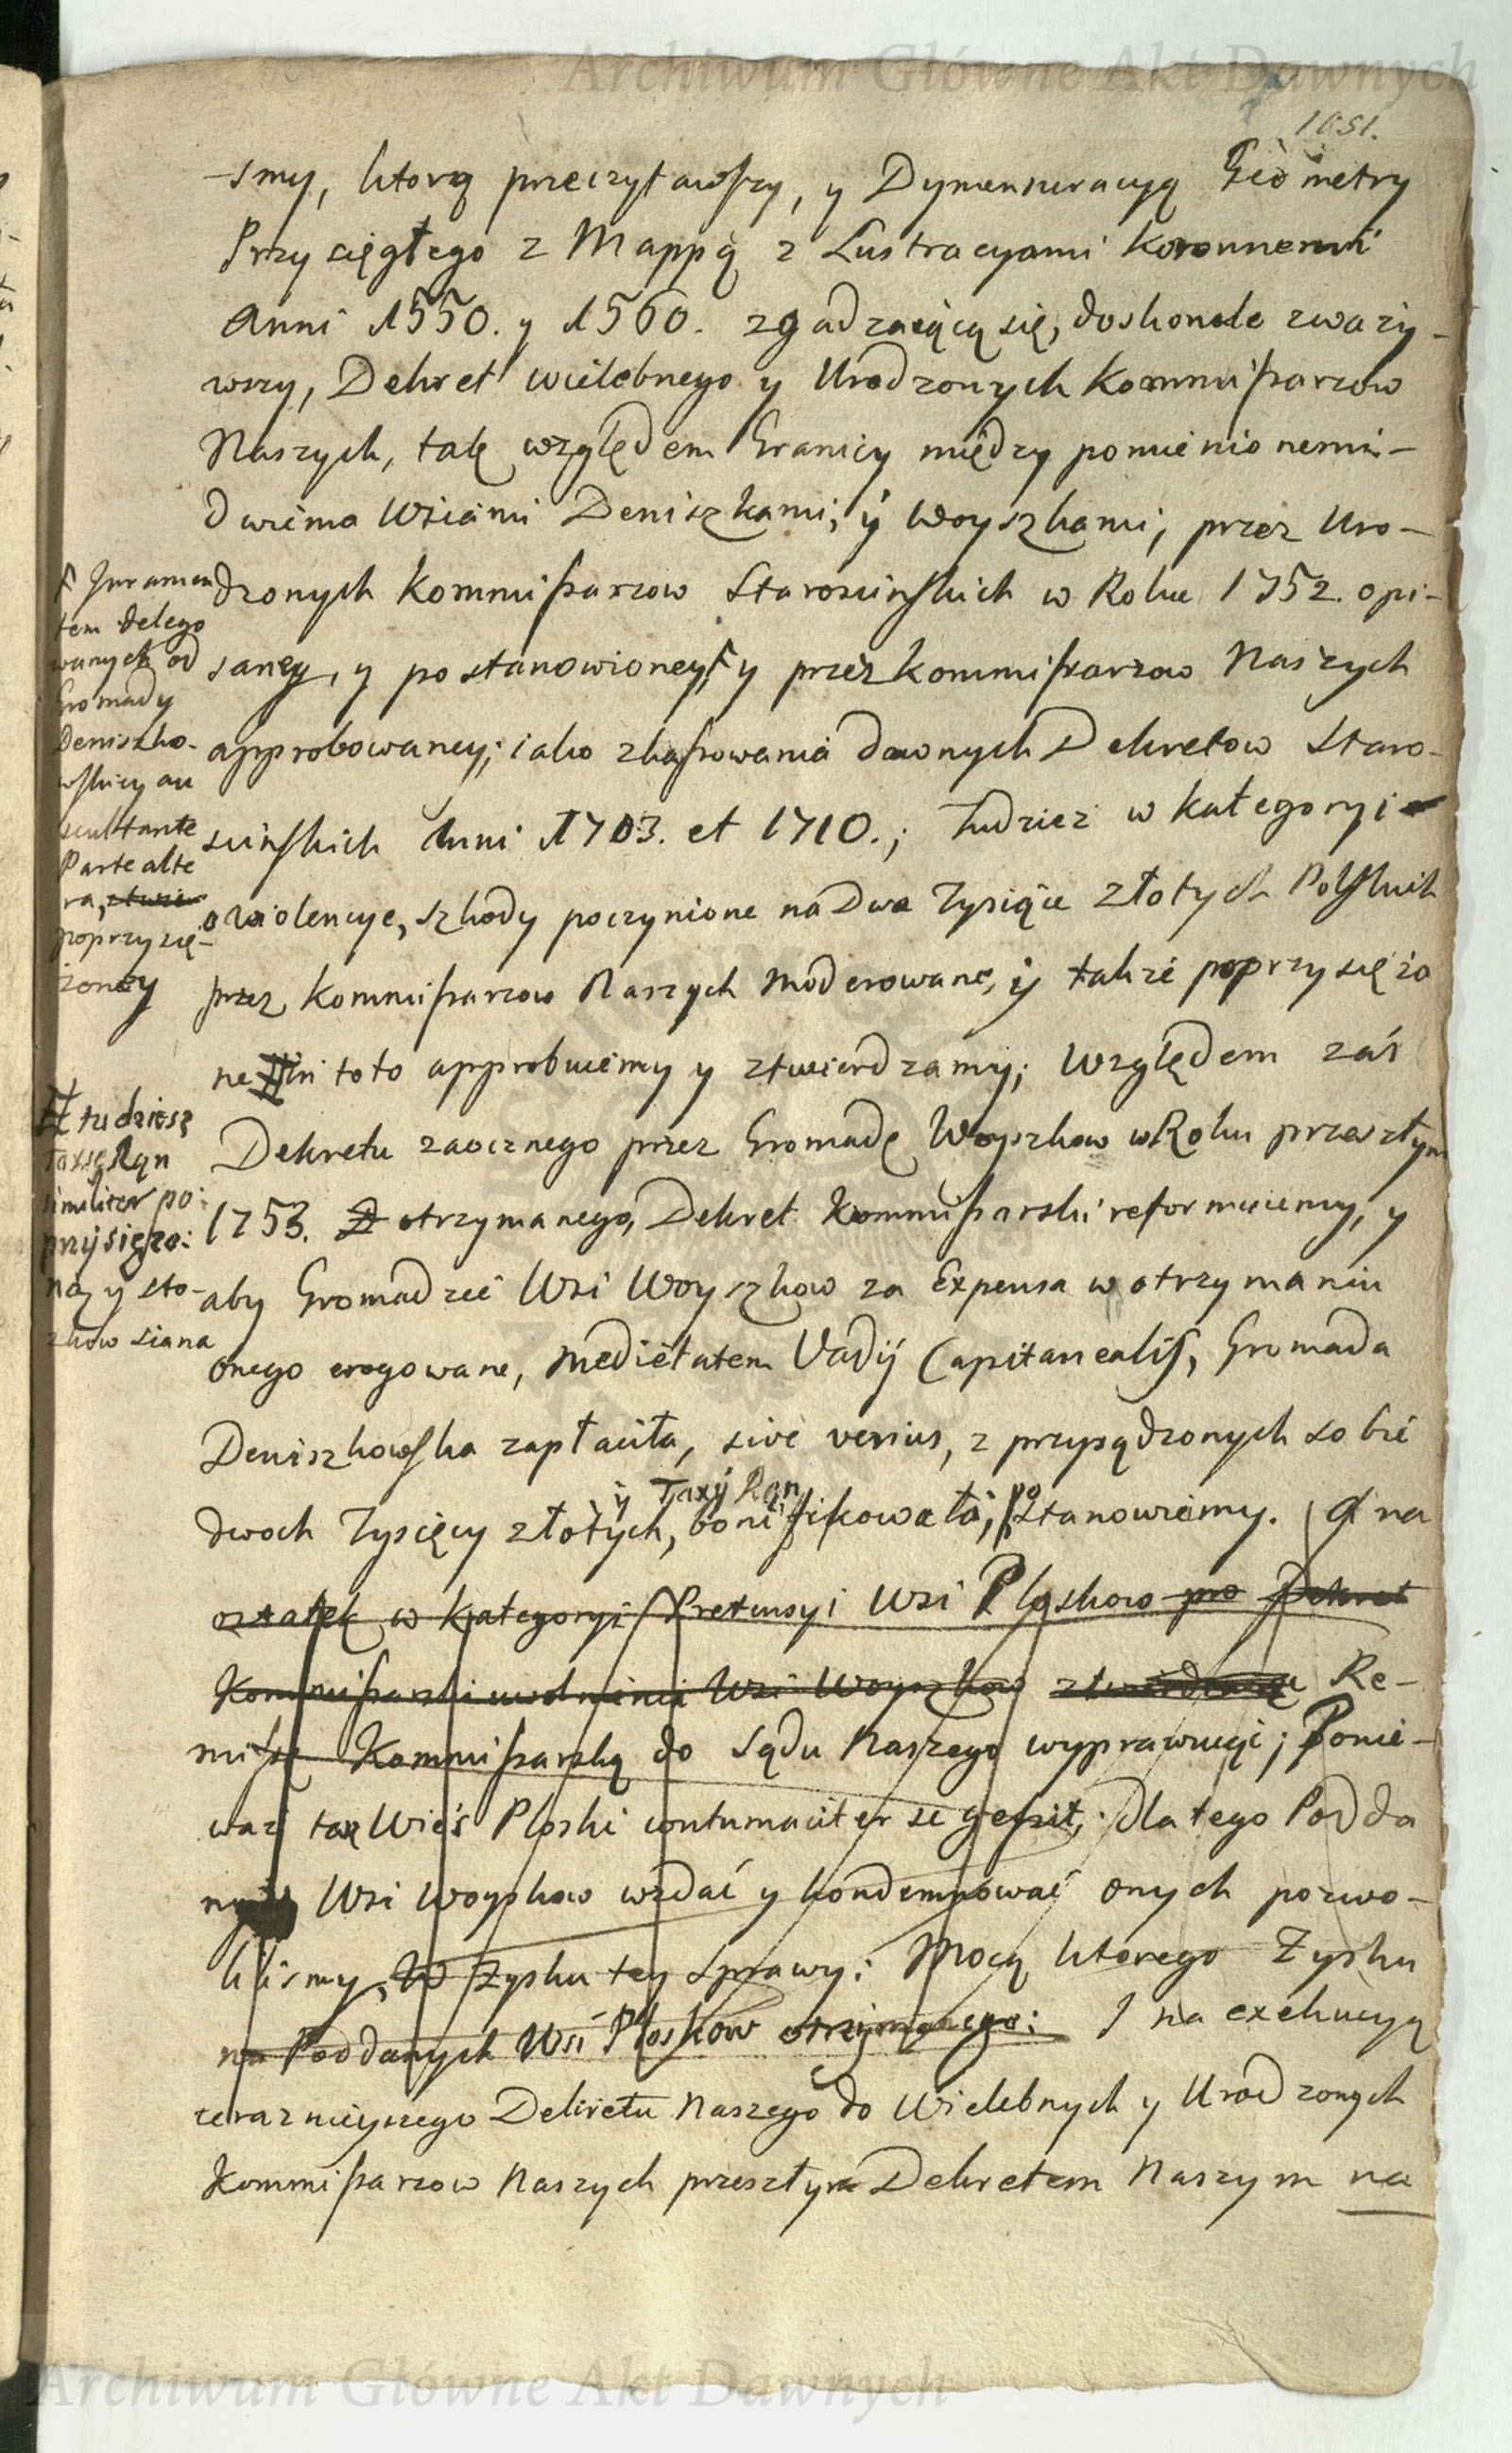 Archiwum Główne Akt Dawnych
1051.
-smy, ktorą przeczytawszy, y Dymensuracyą Geometry
Przysięgłego z Mappą z Lustracyami Koronnemi
Anni 1550. y 1560. zgadzaiącą się, doskonale zważy-
wszy, Dekret Wielebnego y Urodzonych Kommissarzow
Naszych, tak względem Granicy między pomienionemi-
dwiema Wsiami Deniszkami, y Woyszkami, przez Uro-
dzonych Kommissarzow Starościnskich w Roku 1752. opi-
saney, y postanowioney, ꝉ y przez Kommissarzow Naszych
approbowaney; iako skassowania dawnych Dekretow Staro-
scinskich Anni 1703. et 1710.; tudziez w kategoryi
o wiolencye, szkody poczynione na Dwa Tysiące złotych Polskich
przez Kommissarzow Naszych moderowane, y także poprzysiężo
ne # in toto approbuiemy y ztwierdzamy; Względem zaś
Dekretu zaocznego przez Gromadę Woyszkow w Roku przeszłym
1753. otrzymanego, Dekret Kommissarski reformuiemy, y
aby Gromadzie Wsi Woyszkow za Expensa w otrzymaniu
onego erogowane, medietatem Vadij Capitanealis, Gromada
Deniszkowska zapłaciła, sive verius, z przysądzonych sobie
y Taxy Ran
dwoch Tysięcy złotych, bonifikowała, postanowiemy. A na
ostatek w kategoryi Pretensyi Wsi Ploskow pro Dekret
Kommissarski uwolnienia Wsi Woyszkow Re-
missę Kommissarską do Sądu Naszego wyprawuiąc; Ponie-
waż taż Wieś Ploski contumaciter se gessit, dlatego Podda
nych Wsi Woyszkow wzdać y kondemnować onych pozwo-
liliśmy, W Zysku tey Sprawy; Mocą ktorego Zysku
na Poddanych Wsi Ploskow otrzymanego: I na exekucyą
teraznieyszego Dekretu Naszego do Wielebnych y Urodzonych
Kommissarzow Naszych przeszłym Dekretem Naszym na
ꝉ Juramen
tem delego
wanych od
Gromady
Deniszko-
wskiey au
scultante
Parte alte
ra,
poprzysię-
żoney
# tudziesz
Taxę Ran
similiter po:
przysięzo:
ną y sto-
zkow siana
Archiwum Główne Akt Dawnych